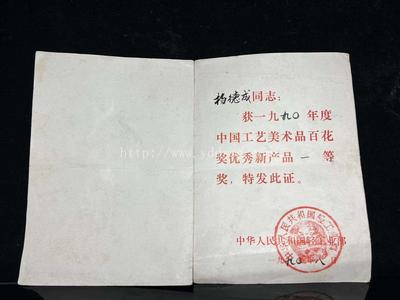 杨德成同志：
获一九九〇年度
中国工艺美术品百花
奖优秀新产品一等
奖，特发此证。
中华人民共和国轻工业部
一九九〇年八月